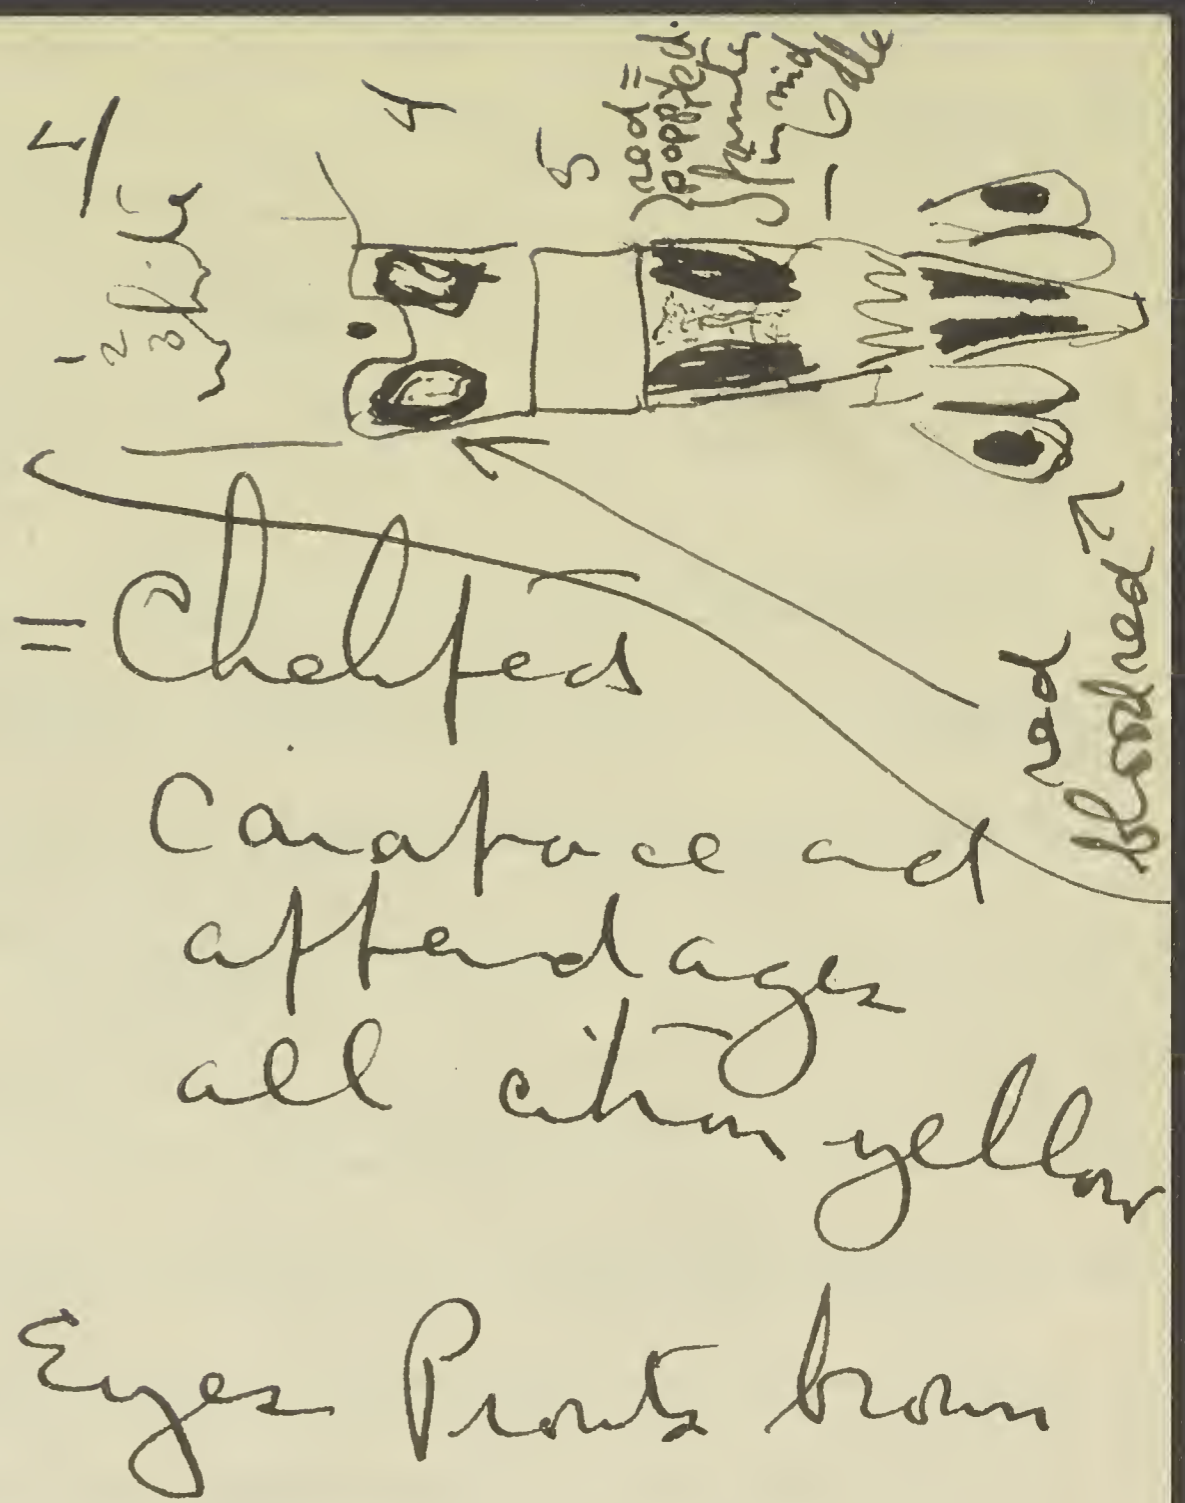 4
5
red =
in mid
– dle
red
blood red
= Chelipeds
Carapace and
appendages
all citron yellow
Eyes Prouts brown